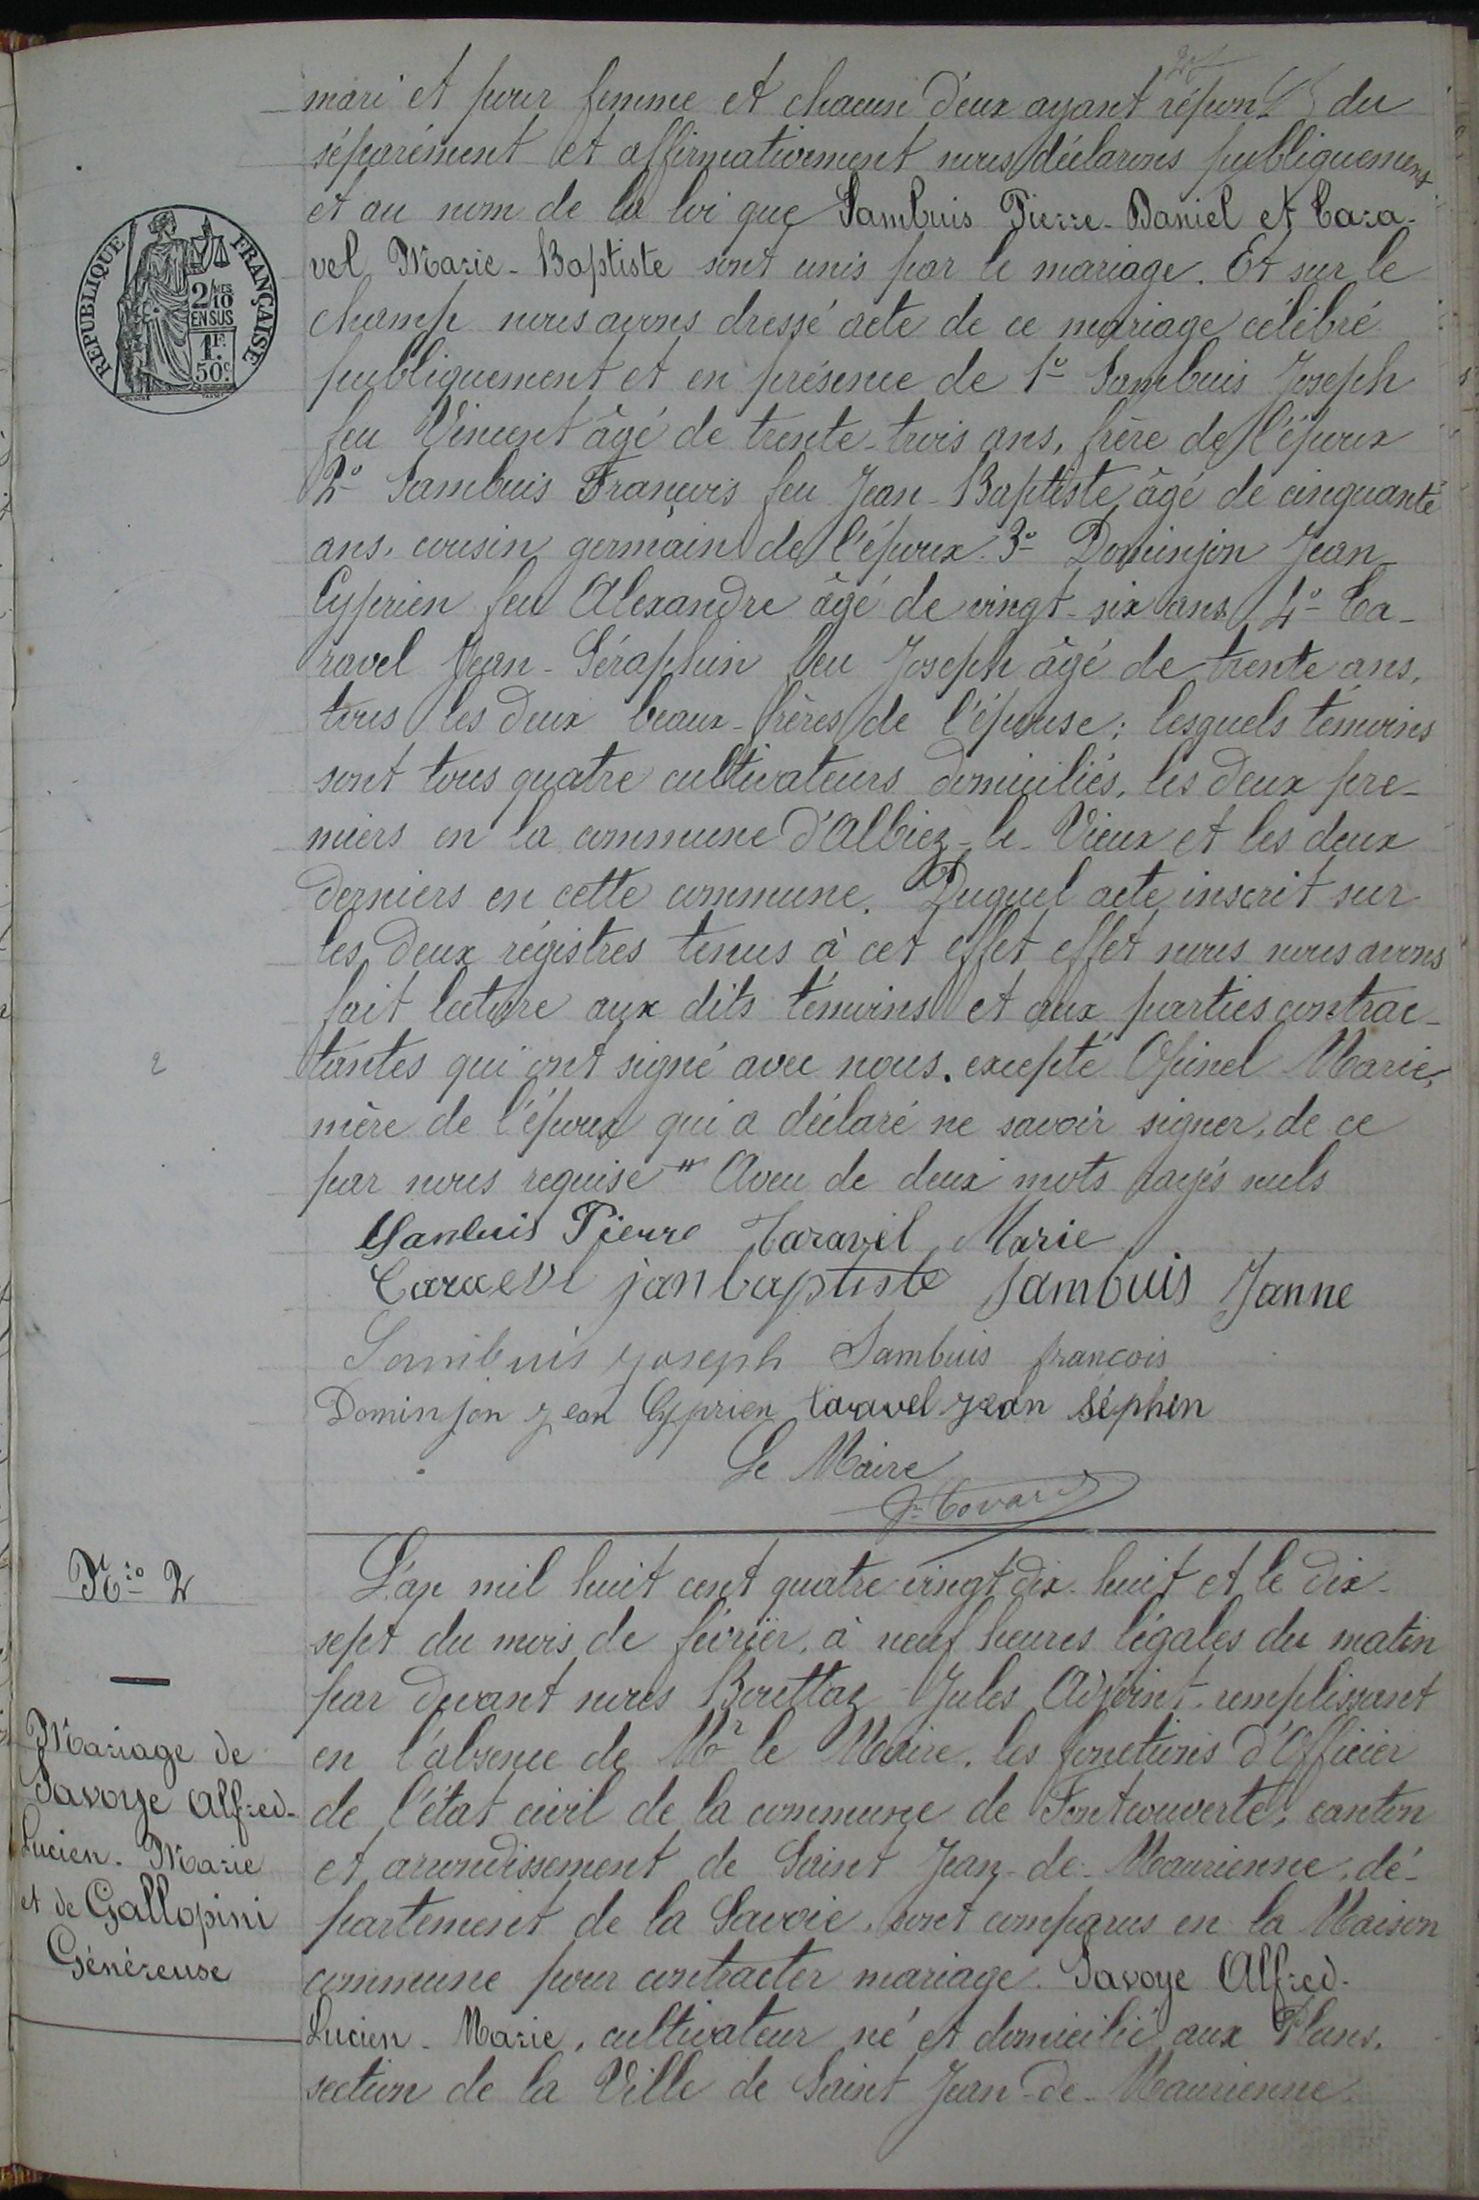 mari et pour femme et chacun d'eux ayant répon du
séparément et affirmativement nous déclarons publiquement
et au nom de la loi que Sambuis Pierre-Daniel et Tara-
vel Marie-Baptiste sont unis par le mariage. Et sur le
champ nous avons dressé acte de ce mariage célébré
publiquement et en présence de 1º Sambuis Joseph
feu Vincent âgé de trente-trois ans, frère de l'époux
2º Sambuis François feu Jean-Baptiste, âgé de cinquante
ans, cousin germain de l'époux. 3º Dominjon Jean-
Cyprien feu Alexandre âgé de vingt-six ans, 4º Ta-
ravel Jean-Séraphin feu Joseph âgé de trente ans,
tous les deux beaux-frères de l'épouse; lesquels témoins
sont tous quatre cultivateurs domiciliés, les deux pre-
miers en la commune d'Albiez-le-Vieux et les deux
derniers en cette commune. Duquel acte inscrit sur
les deux régistres tenus à cet effet effet nous nous avons
fait lecture aux dits témoins et aux parties contrac-
tantes qui ont signé avec nous, excepté Opinel Marie,
mère de l'époux qui a déclaré ne savoir signer, de ce
par nous requise " Aveu de deux mots rayés nuls
Sanbuis Pierre Taravel Marie
Taraevl janbaptiste Sambuis Janne
Sambuis joseph Sambuis francois
Dominjon jean Cyprien taravel jean Séphin
Le Maire
RÉPUBLIQUE FRANÇAISE
2/10
EN SUS
1F.
50c.
Nio 2
Mariage de
Savoye Alfred-
Lucien-Marie
et de Gallopini
Généreuse
L'an mil huit cent quatre vingt dix-huit et le dix-
sept du mois de février, à neuf heures légales du matin
par devant nous Bouttaz Jules Adjoint, remplissant
en l'absence de Mr le Maire, les fonctions d'Officier
de l'état civil de la commune de Fontcouverte, canton
et arrondissement de Saint Jean-de-Maurienne, dé-
partement de la Savoie, sont comparus en la Maison
commune pour contracter mariage. Savoye Alfred-
Lucien-Marie, cultivateur né et domicilié aux Plans,
section de la Ville de Saint Jean-de-Maurienne